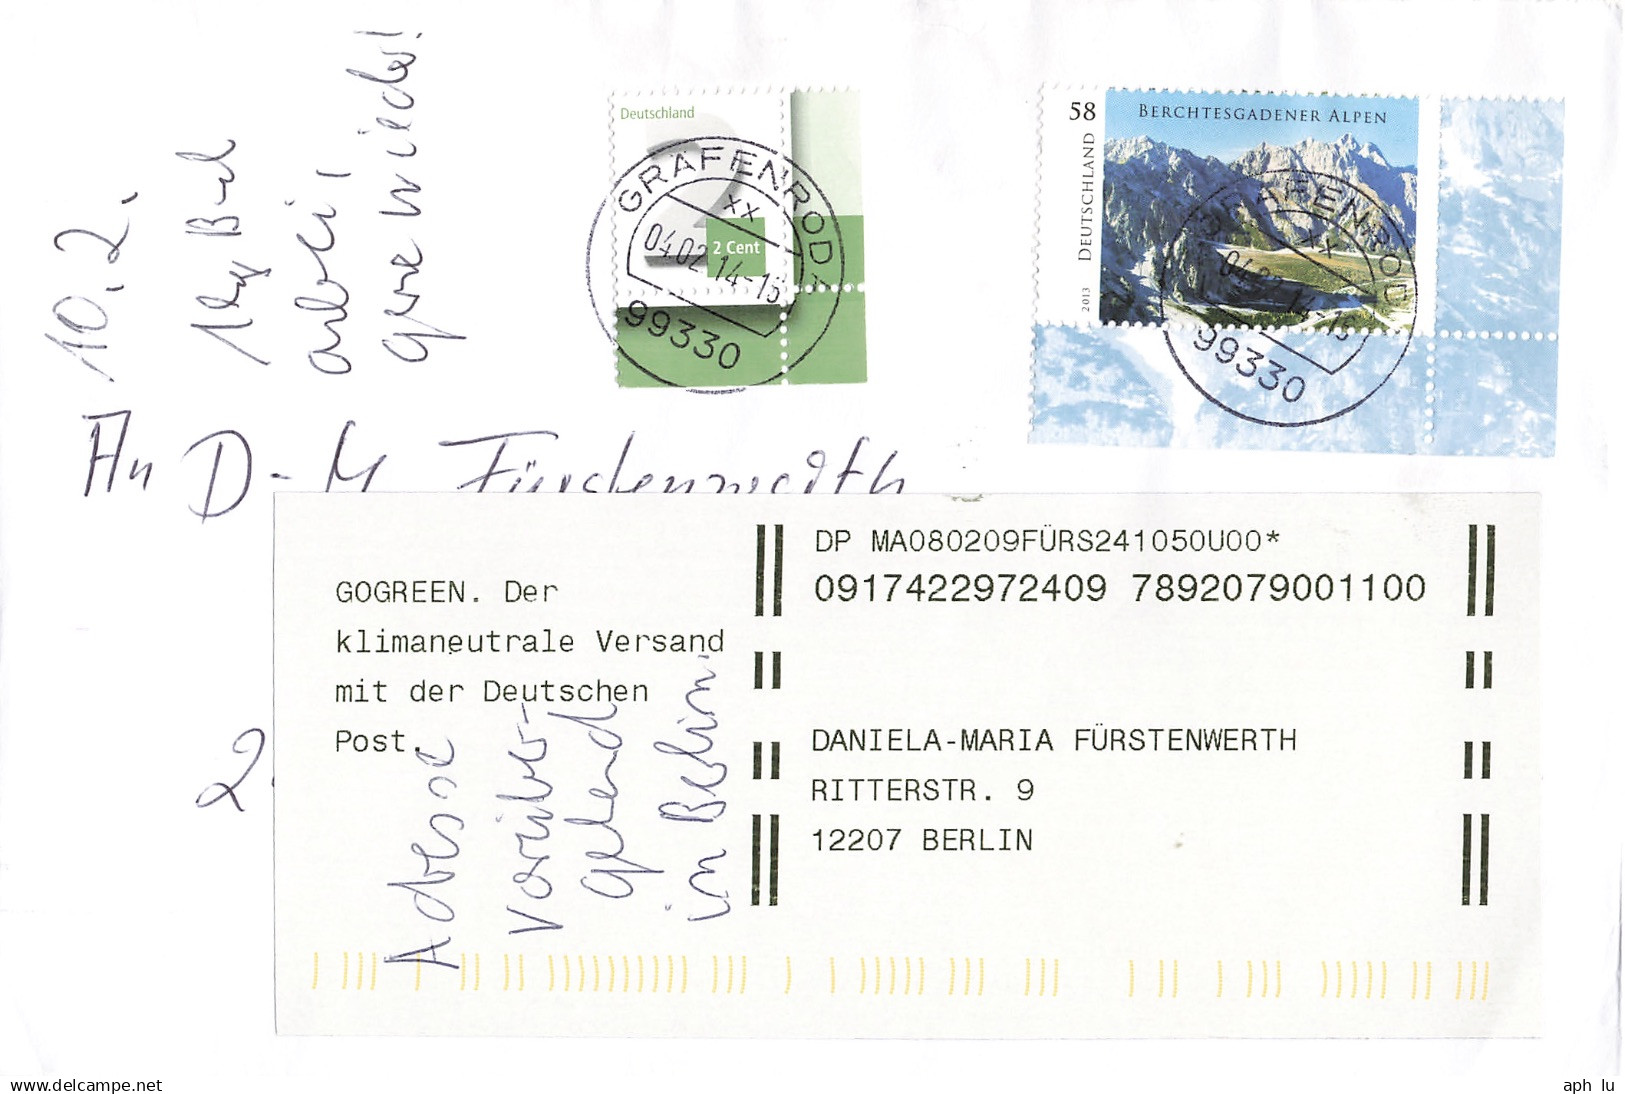 10.2.
1kg B-d
anbei,
gerne wieder!
Deutschland
2
2 Cent
GRÄFENRODA
xx
04.02.14-15
99330
58
BERCHTESGADENER ALPEN
DEUTSCHLAND
2013
GRÄFENRODA
xx
04.02.14-15
99330
An D-M Fürstenwerth
2.
GOGREEN. Der
klimaneutrale Versand
mit der Deutschen
Post.
Adresse
vorüber-
gehend
in Berlin.
DP MA080209FÜRS241050U00*
0917422972409 7892079001100
DANIELA-MARIA FÜRSTENWERTH
RITTERSTR. 9
12207 BERLIN
www.delcampe.net
aph lu